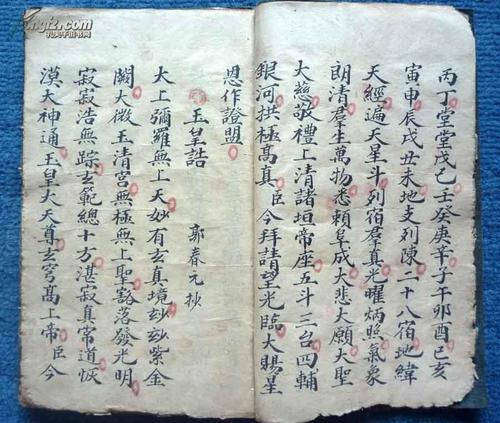 丙丁堂堂戊己壬癸庚辛子午卯酉巳亥
寅申辰戌丑未地支列陳二十八宿地緯
天經遍天星斗列宿羣真光曜炳照氣象
朗清羣生萬物悉賴阜成大悲大願大聖
大慈敬禮上清諸垣帝座五斗三台四輔
銀河拱極高真臣今拜請望光臨大賜星
恩作證盟
玉皇誥 郭春元抄
太上彌羅無上天妙有玄真境玅玅紫金
闕太微玉清宮無極無上聖豁落發光明
寂寂浩無踪玄範總十方湛寂真常道恢
漠大神通玉皇大天尊玄穹高上帝臣今